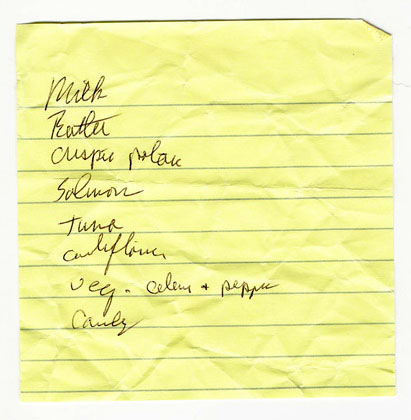 Milk
Butter
Salmon
Tuna
cauliflower
veg. celery + pepper
Candy